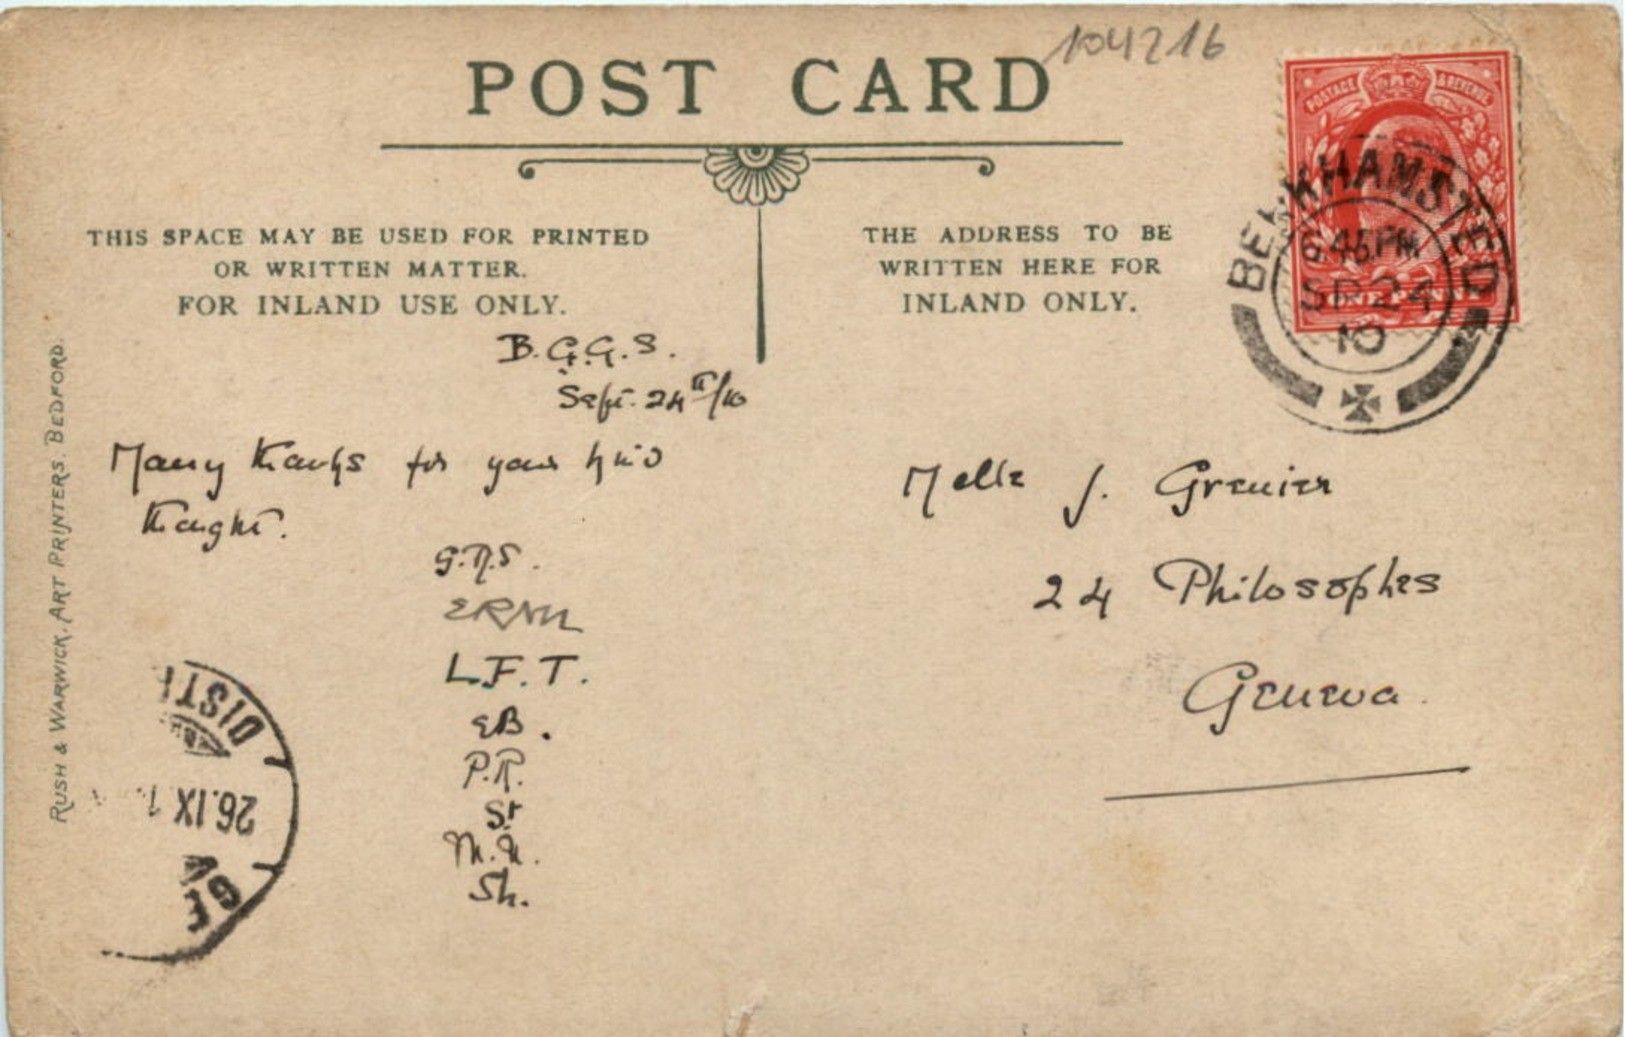 104216
POST CARD
POSTAGE & REVENUE
ONE PENNY
BERKHAMSTED
6.45PM
SP 24
10
THIS SPACE MAY BE USED FOR PRINTED
OR WRITTEN MATTER.
FOR INLAND USE ONLY.
THE ADDRESS TO BE
WRITTEN HERE FOR
INLAND ONLY.
B.G.G.S.
Sept. 24th/10
Many thanks for your kind
thought.
G.R.S.
L.F.T.
EB.
P.R.
St
M.N.
Sh.
Melle J. Grenier
24 Philosophes
Geneva
RUSH & WARWICK, ART PRINTERS, BEDFORD.
DIST
26.IX 1
GE